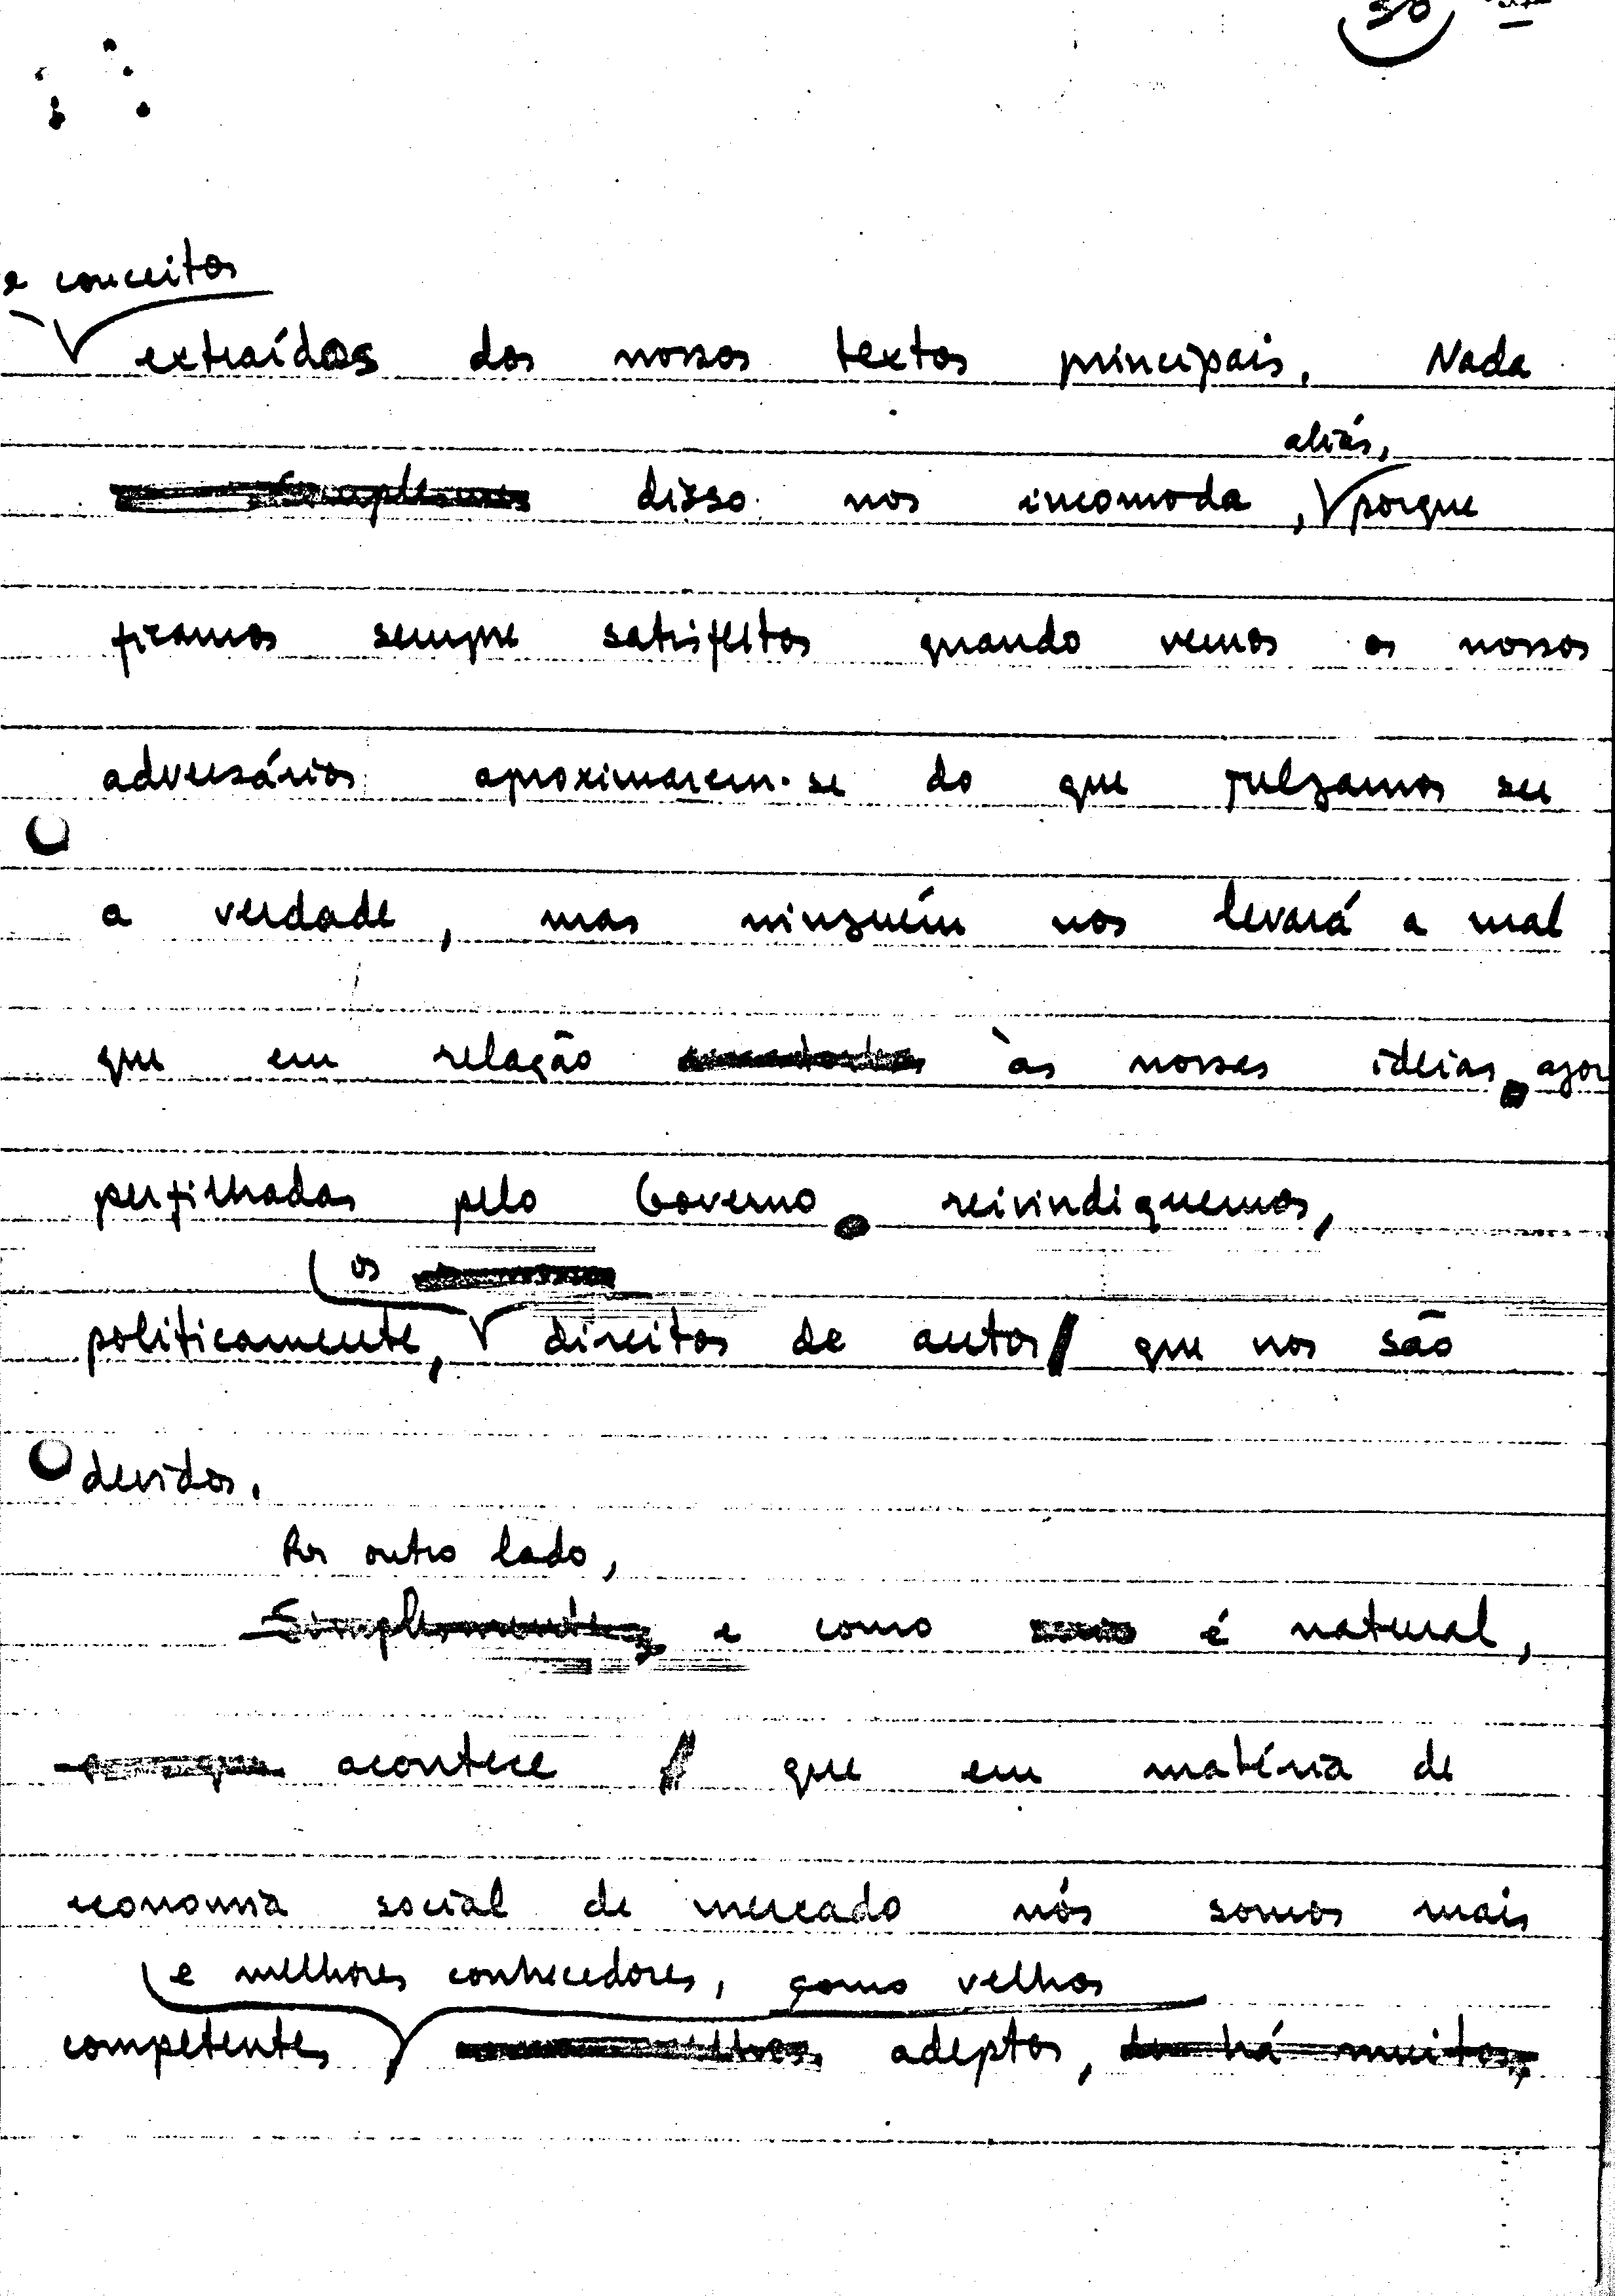 e conceitos
extraídos dos nossos textos principais. Nada
aliás,
disso nos incomoda, porque
ficamos sempre satisfeitos quando vemos os nossos
adversários aproximarem-se do que julgamos ser
a verdade, mas ninguém nos levará a mal
que em relação às nossas ideias agora
perfilhadas pelo Governo reivindiquemos,
os
politicamente, direitos de autor que nos são
devidos.
Por outro lado,
Simplesmente, e como é natural,
acontece que em matéria de
economia social de mercado nós somos mais
e melhores conhecedores, como velhos
competentes adeptos, de há muito,